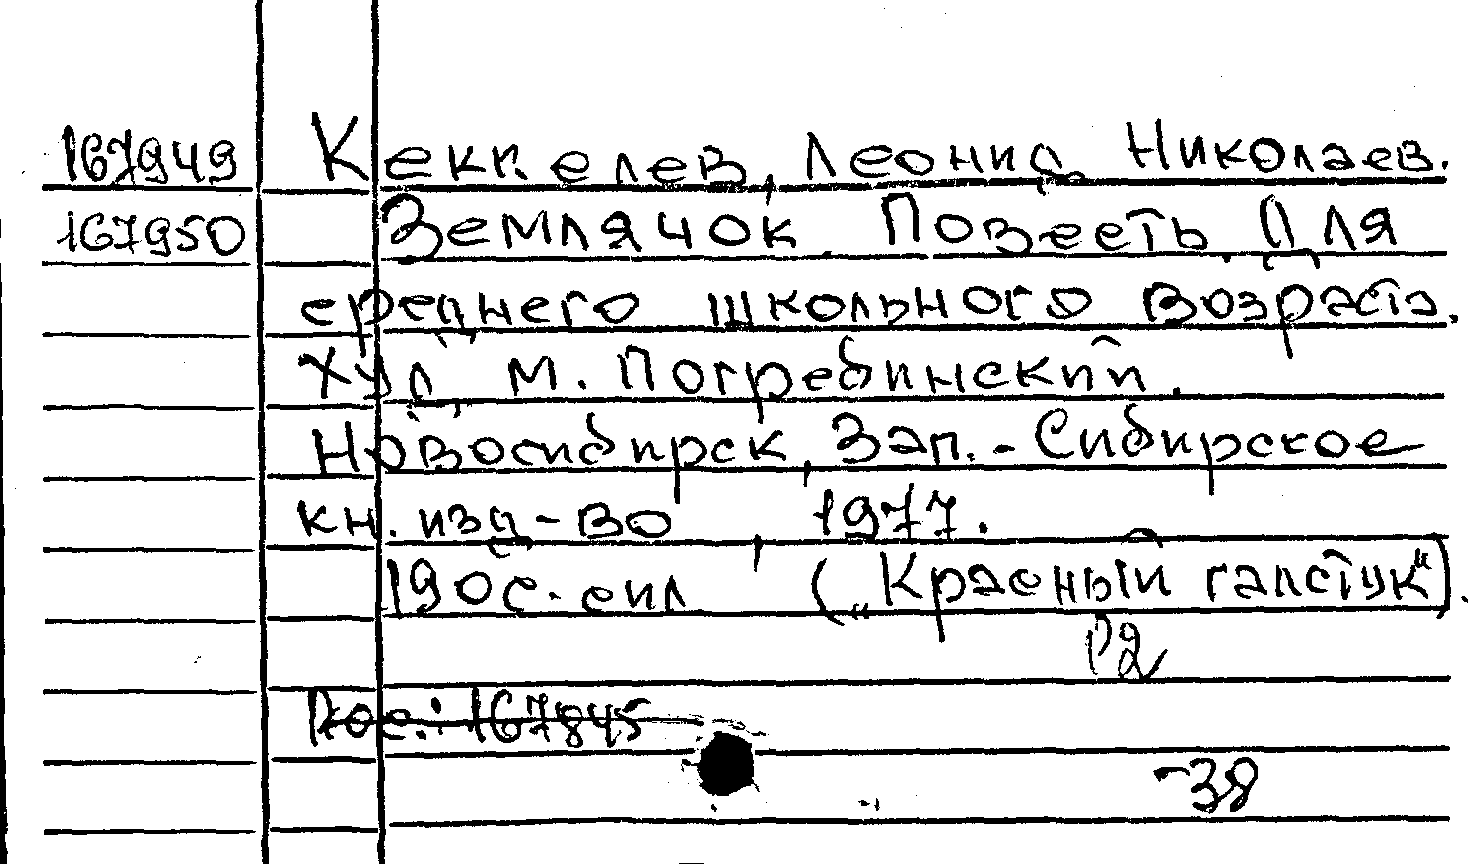 167949 Кеккелев, Леонид Николаев.
167950 Землячок. Повесть. Для
среднего школьного возраста.
Худ. М. Погребинский.
Новосибирск, Зап.-Сибирское
кн. изд-во, 1977.
190с. с ил („Красный галстук“).
Р2
Пос.: 167845
-38